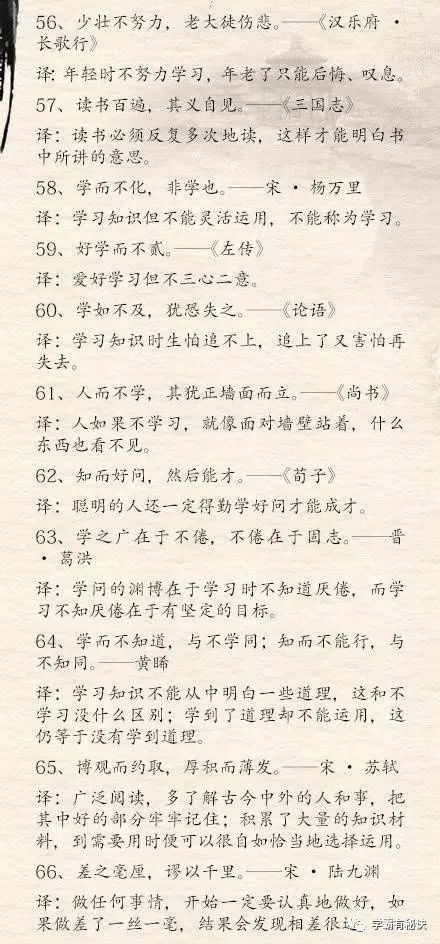 56、少壮不努力，老大徒伤悲。——《汉乐府 ·
长歌行》
译：年轻时不努力学习，年老了只能后悔、叹息。
57、读书百遍，其义自见。——《三国志》
译：读书必须反复多次地读，这样才能明白书
中所讲的意思。
58、学而不化，非学也。——宋 · 杨万里
译：学习知识但不能灵活运用，不能称为学习。
59、好学而不贰。——《左传》
译：爱好学习但不三心二意。
60、学如不及，犹恐失之。——《论语》
译：学习知识时生怕追不上，追上了又害怕再
失去。
61、人而不学，其犹正墙面而立。——《尚书》
译：人如果不学习，就像面对墙壁站着，什么
东西也看不见。
62、知而好问，然后能才。——《荀子》
译：聪明的人还一定得勤学好问才能成才。
63、学之广在于不倦，不倦在于固志。——晋
· 葛洪
译：学问的渊博在于学习时不知道厌倦，而学
习不知厌倦在于有坚定的目标。
64、学而不知道，与不学同；知而不能行，与
不知同。——黄睎
译：学习知识不能从中明白一些道理，这和不
学习没什么区别；学到了道理却不能运用，这
仍等于没有学到道理。
65、博观而约取，厚积而薄发。——宋 · 苏轼
译：广泛阅读，多了解古今中外的人和事，把
其中好的部分牢牢记住；积累了大量的知识材
料，到需要用时便可以很自如恰当地选择运用。
66、差之毫厘，谬以千里。——宋 · 陆九渊
译：做任何事情，开始一定要认真地做好，如
果做差了一丝一毫，结果会发现相差很
学霸有秘快